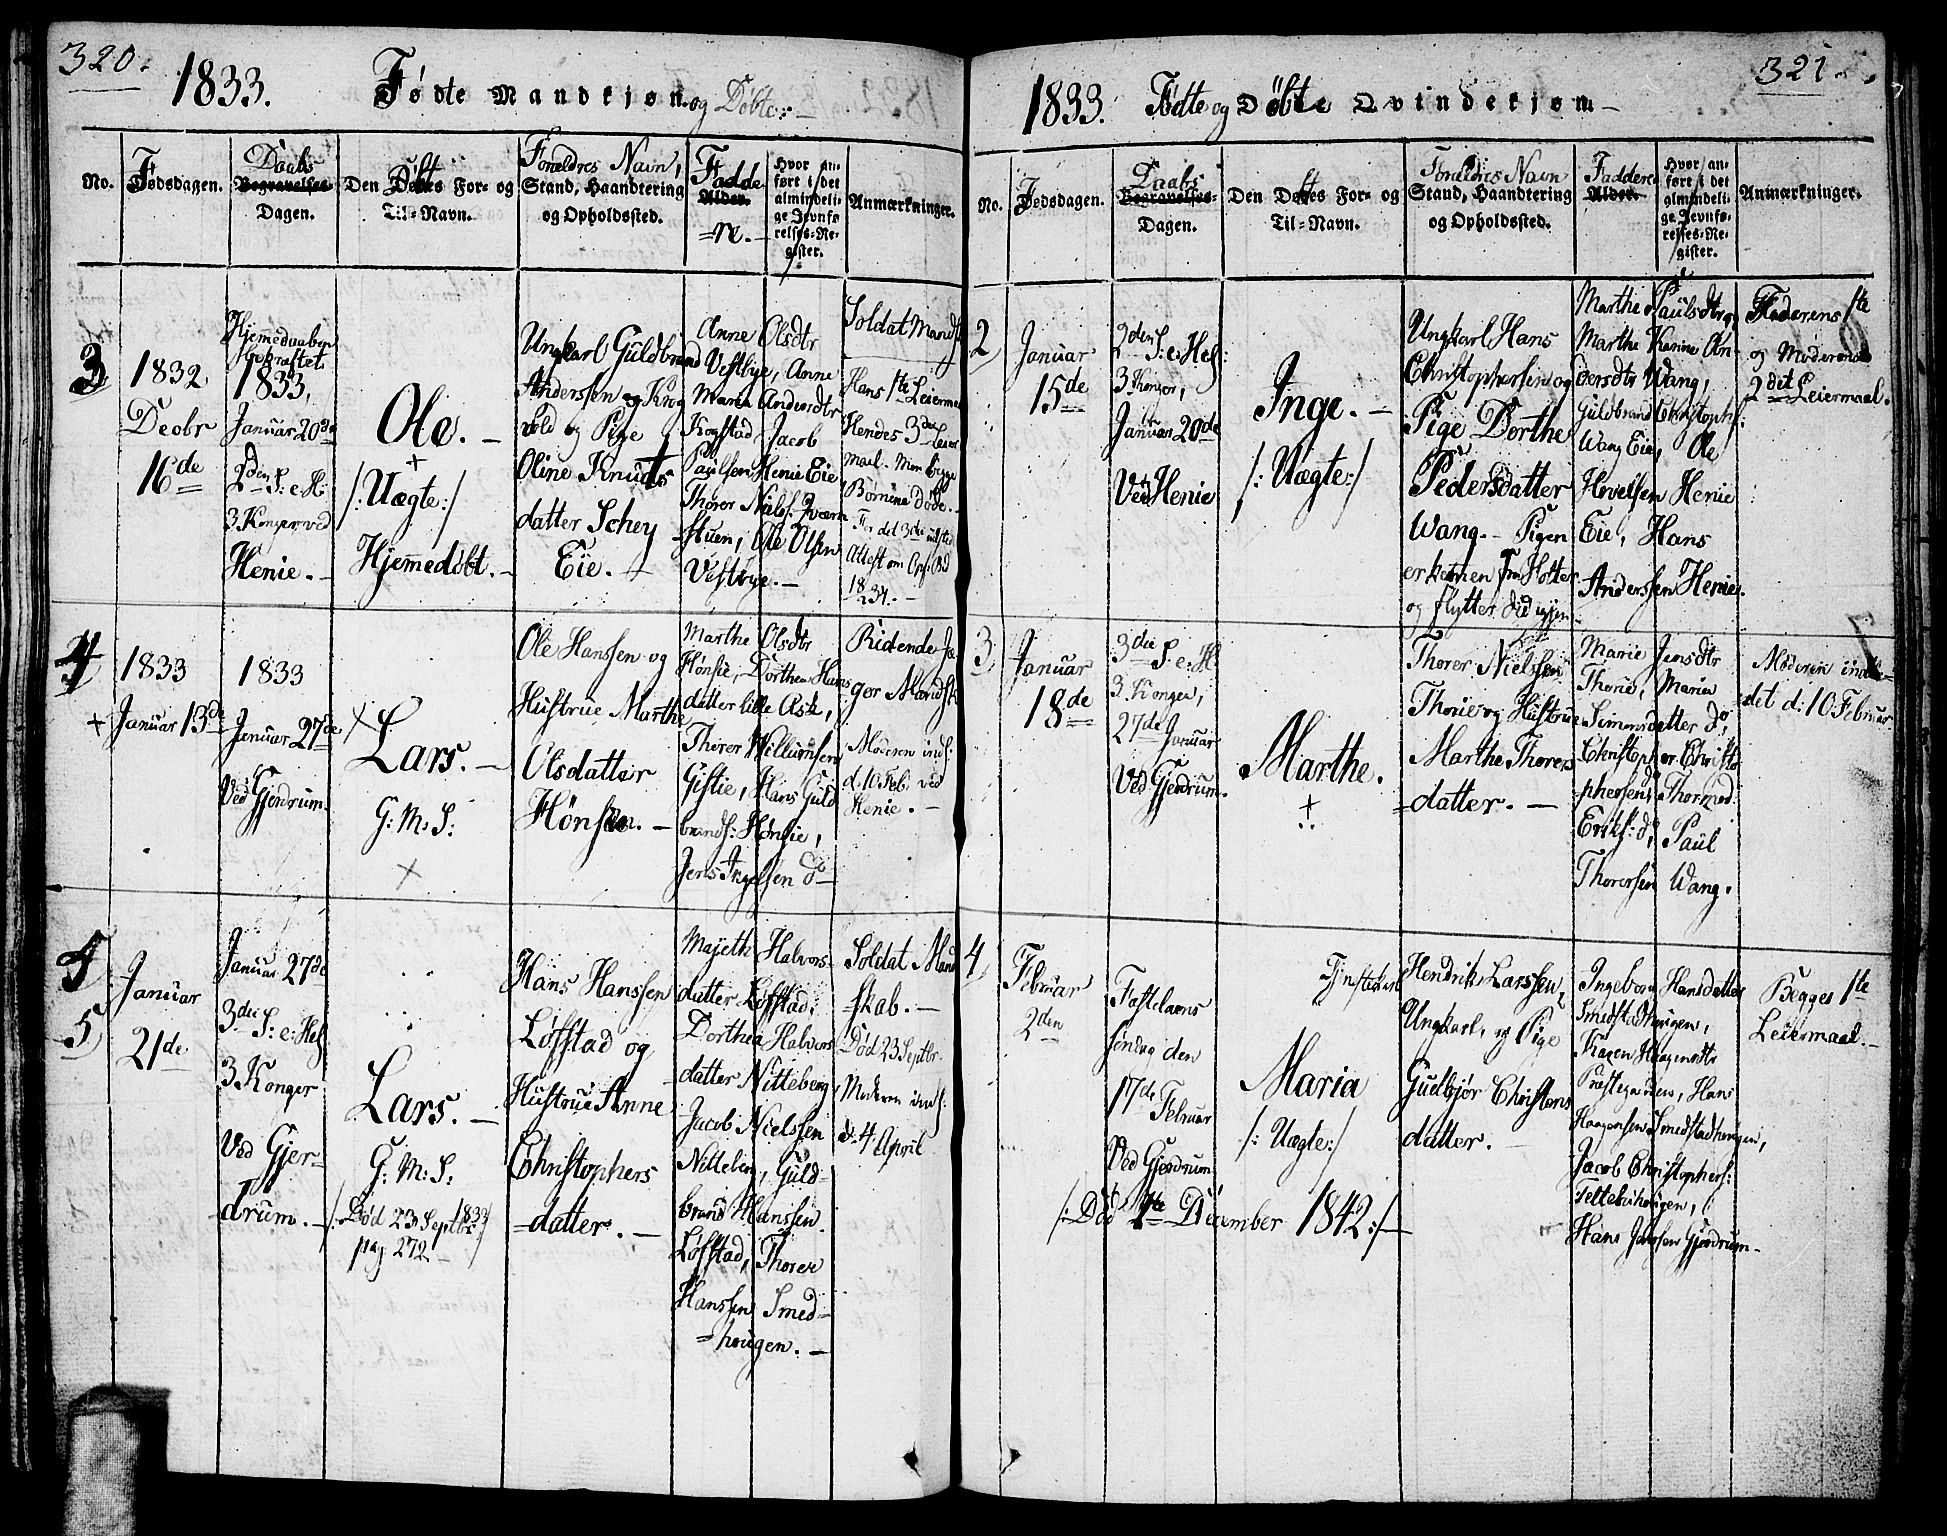 320.
1833. Fødte Mandkjøn og Døbte.
No.
Fødsdagen.
Daabs
Begravelses-
Dagen.
Den Døbtes For- og
Til-Navn.
Forældres Navn,
Stand, Haandtering
og Opholdssted.
Fadde
Alder.
=re.
Hvor an-
ført i det
almindeli-
ge Jevnfø-
relses-Re-
gister.
Anmærkninger.
3
1832
Decbr
16de
Hjemedaaben
bekræftet
1833,
Januar 20de
2den S: e H:
3 Konger, ved
Henie.
Ole.
+
/: Uægte:/
Hjemedøbt.
Ungkarl Guldbrand
Anderssen og Krog
vold og Pige
Oline Knuds
datter Schey
Eie.
Anne Olsdtr
Vestbye, Anne
Maria Andersdtr
Kogstad, Jacob
Paulsen Henie Eie,
Thorer Niels: Kværn
stuen, Ole Olsen
Vestbye.
Soldat Mandsk
Hans 1ste Leierma
Hendes 3die Leier
mael. Men begge
Børnene døde.
For det 3die udsted
Attest om
1834.
4
1833
+ Januar 13de
1833
Januar 27de
Ved Gjerdrum.
+
Lars.
G: M: S:
+
Ole Hanssen og
Hustrue Marthe
Olsdatter
Hønsie.
Marthe Olsdtr
Hønsie, Dorthea Hans
datter lille Ask,
Thorer Willumsen
Gistie, Hans Guld
brands: Hønsie,
Jens Ingelsen do
Ridende Ja
ger Mandsk
Moderen inds:
d. 10 Feb. ved
Henie.
5
5
Januar
21de
Januar 27de
3die S: e: Hel
3 Konger
Ved Gjer-
drum.
Lars.
G: M: S:
/: Død 23 Septbr 1833 :/
pag 272
Hans Hanssen
Løfstad og
Hustrue Anne
Christophers
=datter.
Majeth Halvors-
datter Løfstad,
Dorthea Halvors
datter Nitteberg,
Jacob Nielssen
Nitteberg, Guld-
brand Hanssen
Løfstad, Thorer
Hanssen Smed-
=hougen.
Soldat Mand
skab.
Død 23 Septbr.
Moderen inds:
d. 4 April
321.
1833. Fødte og Døbte Qvindekjøn
No.
Fødsdagen.
Daabs
Begravelses-
Dagen.
Den Døbtes For- og
Til-Navn.
Forældres Navn
Stand, Haandtering
og Opholdssted.
Faddere
Alder.
Hvor an-
ført i det
almindeli-
ge Jevnfø-
relses-Re-
gister.
Anmærkninger.
2
Januar
15de
2den S: e: Hel:
3 Konger,
Januar 20de
Ved Henie
Inge.
/: Uægte:/
Ungkarl Hans
Christophersen og
Pige Dorthe
Pedersdatter
Wang. Pigen
er kommen fra Holter
og flytter did igjen
Marthe Paulsdtr og
Marthe Karine An-
dersdtr Wang,
Guldbrand Christoph:
Wang Eie, Ole
Hovelsen Henie
Eie, Hans
Anderssen Henie.
Faderens 1ste
og Moderens
2det Leiermaal.
3
Januar
18de
3die S: e: H
3 Konger,
27de Januar
Ved Gjerdrum.
Marthe.
+
Thorer Nielssen
Thorie og Hustrue
Marthe Thorers
=datter.
Marie Jensdtr
Thorie, Maria
Simensdatter do,
Christopher Christo
phersen do, Thormod
Eriks: do, Paul
Thorersen Wang.
Moderen indle-
det d: 10 Februar
4
Februar
2den
Fastelavns
søndag den
17de Februar
Ved Gjerdrum
Maria
/: Uægte:/
/: Død 1te December 1842:/
Hendrik Larssen,
Ungkarl, og Pige
Gudbjør Christens
datter.
Ingeborg Hansdatter
Smedstadhougen,
Karen Haagensdtr
Præstegaarden, Hans
Haagensen Smedstadhougen,
Jacob Christophers:
Hans Jenssen Gjerdrum
Begges 1ste
Leiermaal.